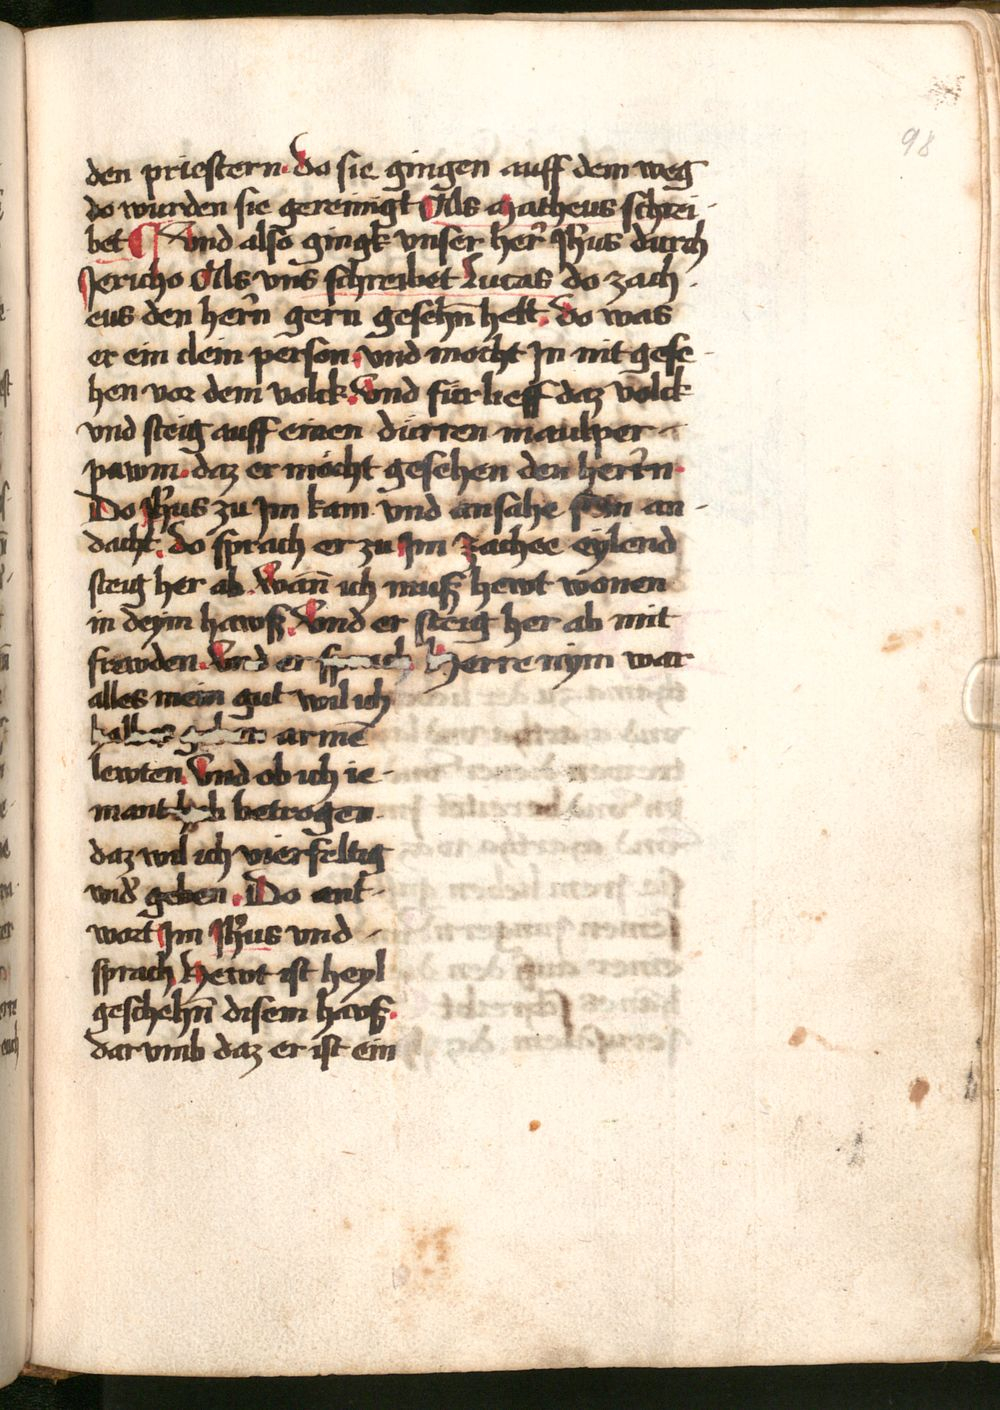 98
den priestern. Do sie gingen auff dem weg
do wurden sie gereinigt Als Matheus schrei-
bet ¶ Vnd also gingk vnser her̄ Jh̄us durch
Jericho Als vns schreibet Lucas do zach-
eus den her̄n gern geseh̄n hett. Do was
er ein clein person. vnd mocht Jn nit gese-
hen vor dem volck. Vnd für lieff daz volck
vnd steig auff einen dürren maulper-
pawm. daz er möcht gesehen den herrn.
Do Jh̄us zu Jm kam vnd ansahe sein an-
dacht. do sprach er zu Jm Zachee eylend
steig her ab. Wan̄ ich muß hewt wonen
in deym hawß. Vnd er steig her ab mit
frewden. Vnd er sprach Herre nym war
alles mein gut wil ich
halbes geben armē
lewten. Vnd ob ich ie-
mant hab betrogen.
daz wil ich vierfeltig
wid' geben. Do ant-
wort Jm Jh̄us vnd-
sprach Hewt ist heyl
gescheh̄n disem hauß.
dar vmb daz er ist ein